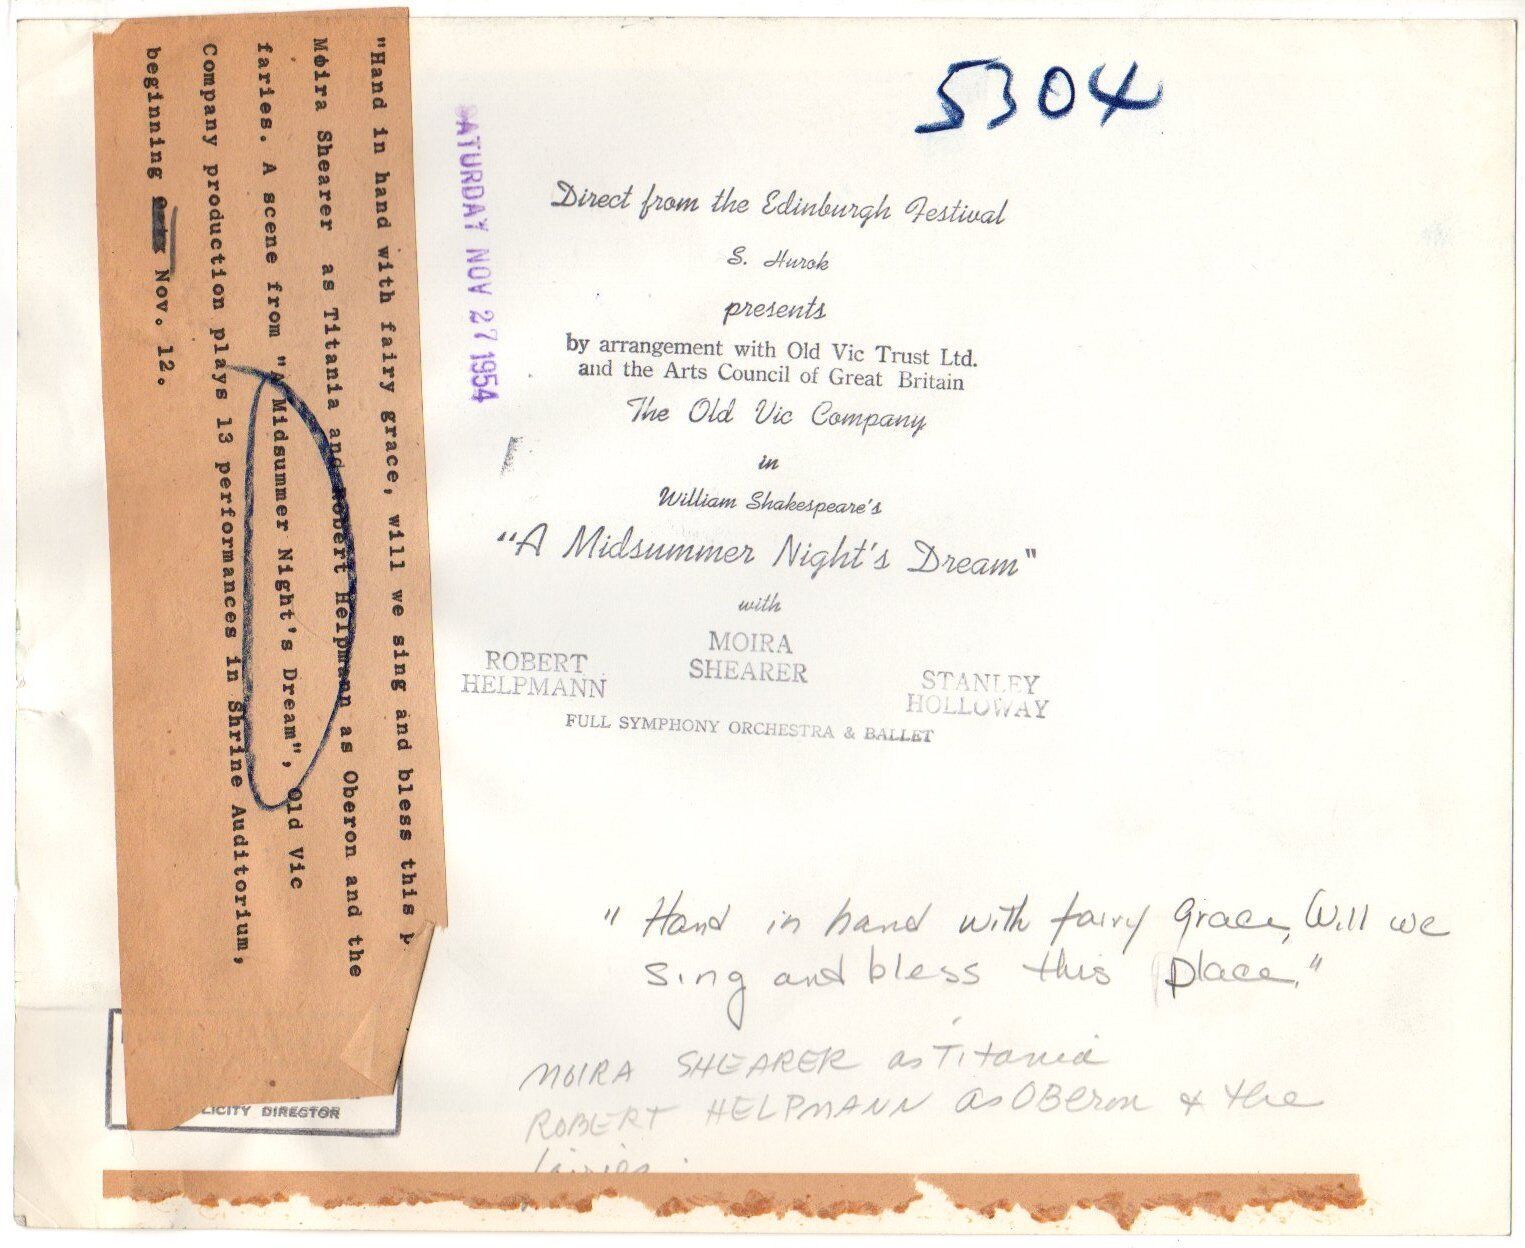 "Hand in hand with fairy grace, will we sing and bless this
Moira Shearer as Titania and Robert Helpmann as Oberon and the
faries. A scene from "A Midsummer Night's Dream", Old Vic
Company production plays 13 performances in Shrine Auditorium,
beginning Nov. 12.
SATURDAY NOV 27 1954
5304
Direct from the Edinburgh Festival
S. Hurok
presents
by arrangement with Old Vic Trust Ltd.
and the Arts Council of Great Britain
The Old Vic Company
in
William Shakespeare's
"A Midsummer Night's Dream"
with
MOIRA
SHEARER
ROBERT
HELPMANN
STANLEY
HOLLOWAY
FULL SYMPHONY ORCHESTRA & BALLET
"Hand in hand with fairy Grace, Will we
sing and bless this place."
MOIRA SHEARER as Titania
ROBERT HELPMANN as OBeron & the
fairies.
LICITY DIRECTOR